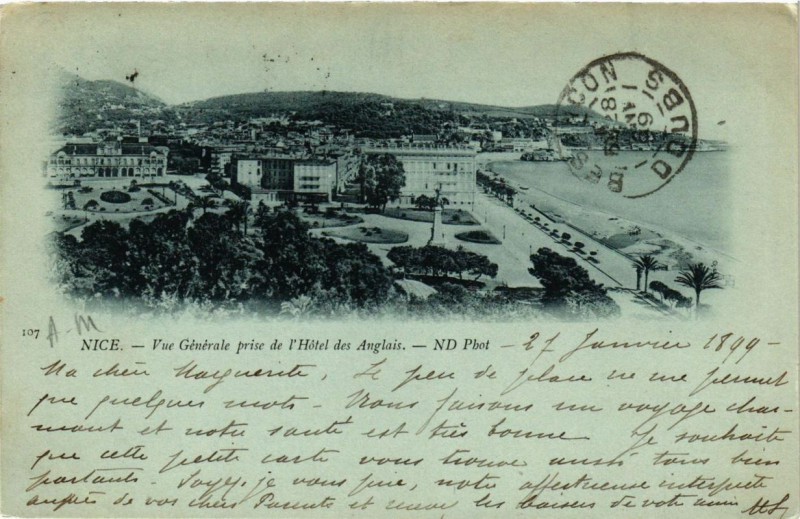 BESANÇON
DOUBS
28
JANV
99
107
A-M
NICE. — Vue Générale prise de l'Hôtel des Anglais. — ND Phot — 27 Janvier 1899 —
Ma chère Marguerite, Le peu de place ne me permet
que quelques mots — Nous faisons un voyage char-
mant et notre santé est très bonne Je souhaite
que cette petite carte vous trouve aussi tous bien
portants — Soyez, je vous prie, notre affectueuse interprète
auprès de vos chers Parents et les baisers de votre amie